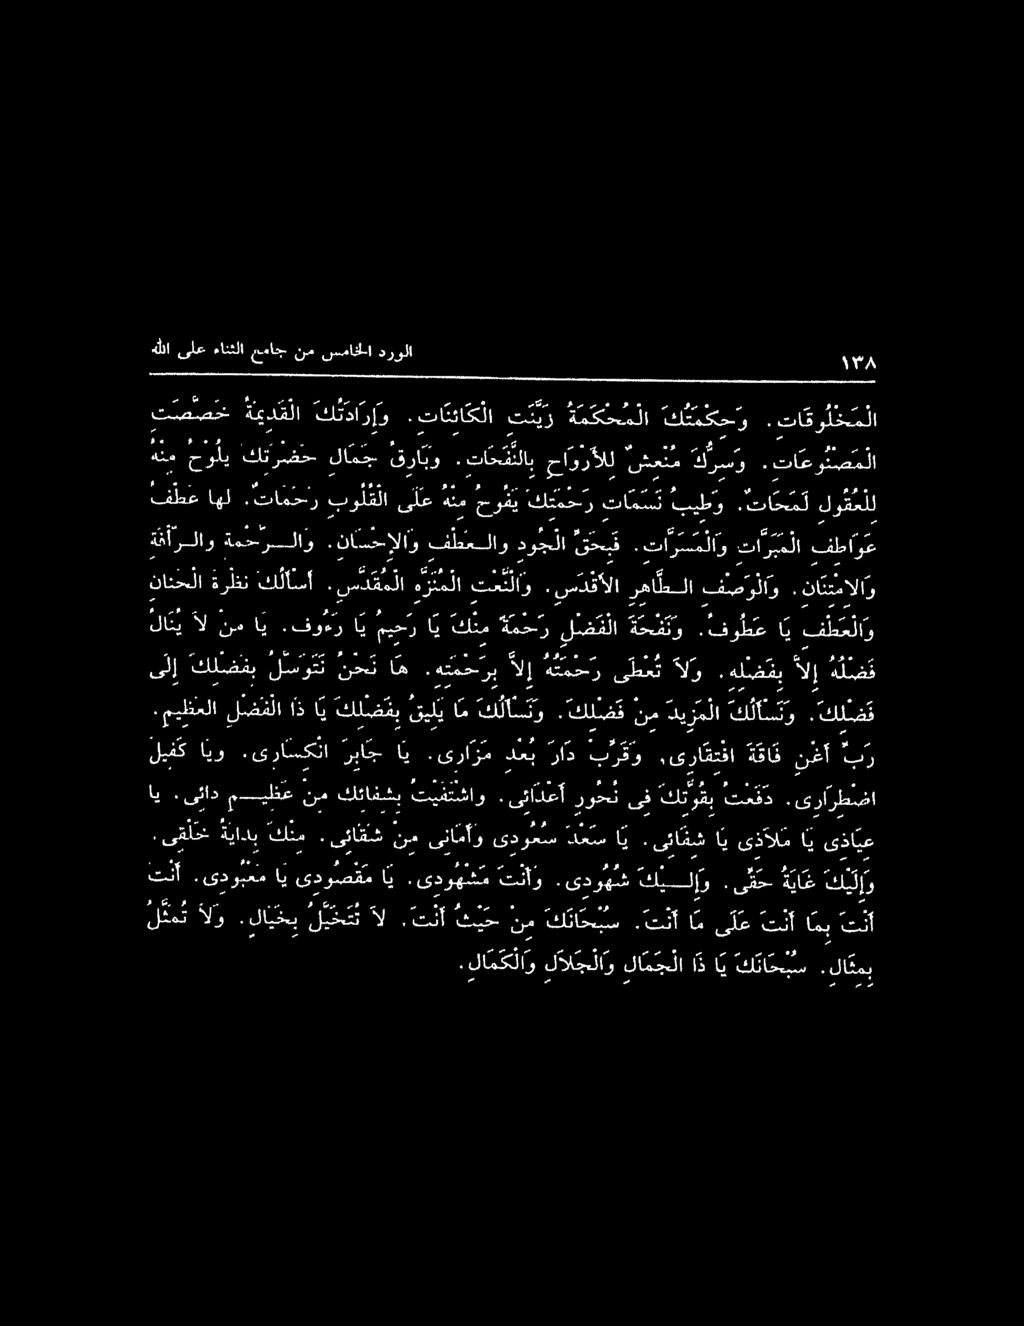 ١٣٨
الورد الخامس من جامع الثناء على الله
الْمَخْلُوقَاتِ. وَحِكْمَتُكَ الْمُحْكَمَةُ زَيَّنَتِ الْكَائِنَاتِ. وَإِرَادَتُكَ الْقَدِيمَةُ خَصَّصَتِ
الْمَصْنُوعَاتِ. وَسِرُّكَ مُنْعِشٌ لِلْأَرْوَاحِ بِالنَّفَحَاتِ. وَبَارِقُ جَمَالِ حَضْرَتِكَ يَلُوحُ مِنْهُ
لِلْعُقُولِ لَمَحَاتٌ. وَطِيبُ نَسَمَاتِ رَحْمَتِكَ يَفُوحُ مِنْهُ عَلَى الْقُلُوبِ رَحَمَاتٌ. لها عَطْفُ
عَوَاطِفِ الْمَبَرَّاتِ وَالْمَسَرَّاتِ. فَبِحَقِّ الْجُودِ والـعَطْفِ وَالإِحْسَانِ. وَالـرَّحْمَةِ والـرَّأْفَةِ
وَالامْتِنَانِ. وَالْوَصْفِ الـطَّاهِرِ الأَقْدَسِ. وَالنَّعْتِ الْمُنَزَّهِ الْمُقَدَّسِ. أَسْأَلُكَ نَظْرَةَ الْحَنَانِ
وَالْعَطْفِ يَا عَطُوفُ. وَنَفْحَةَ الْفَضْلِ رَحْمَةً مِنْكَ يَا رَحِيمُ يَا رَءُوفُ. يَا مَنْ لاَ يُنَالُ
فَضْلُهُ إِلاَّ بِفَضْلِهِ. وَلاَ تُعْطَى رَحْمَتُهُ إِلاَّ بِرَحْمَتِهِ. هَا نَحْنُ نَتَوَسَّلُ بِفَضْلِكَ إِلَى
فَضْلِكَ. وَنَسْأَلُكَ الْمَزِيدَ مِنْ فَضْلِكَ. وَنَسْأَلُكَ مَا يَلِيقُ بِفَضْلِكَ يَا ذَا الْفَضْلِ الْعَظِيمِ.
رَبِّ أَغْنِ فَاقَةَ افْتِقَارِى، وَقَرِّبْ دَارَ بُعْدِ مَزَارِى. يَا جَابِرَ انْكِسَارِى. وَيَا كَفِيلَ
اضْطِرَارِى. دَفَعْتُ بِقُوَّتِكَ فِى نُحُورِ أَعْدَائِى. وَاشْتَفَيْتُ بِشِفَائِكَ مِنْ عَظِيـمِ دَائِى. يَا
عِيَاذِى يَا مَلاَذِى يَا شِفَائِى. يَا سَعْدَ سُعُودِى وَأَمَانِى مِنْ شَقَائِى. مِنْكَ بِدَايَةُ خَلْقِى.
وَإِلَيْكَ غَايَةُ حَقِّى. وَإِلَـيْكَ شُهُودِى. وَأَنْتَ مَشْهُودِى. يَا مَقْصُودِى يَا مَعْبُودِى. أَنْتَ
أَنْتَ بِمَا أَنْتَ عَلَى مَا أَنْتَ. سُبْحَانَكَ مِنْ حَيْثُ أَنْتَ. لاَ تُتَخَيَّلُ بِخَيَالٍ. وَلاَ تُمَثَّلُ
بِمِثَالٍ. سُبْحَانَكَ يَا ذَا الْجَمَالِ وَالْجَلاَلِ وَالْكَمَالِ.